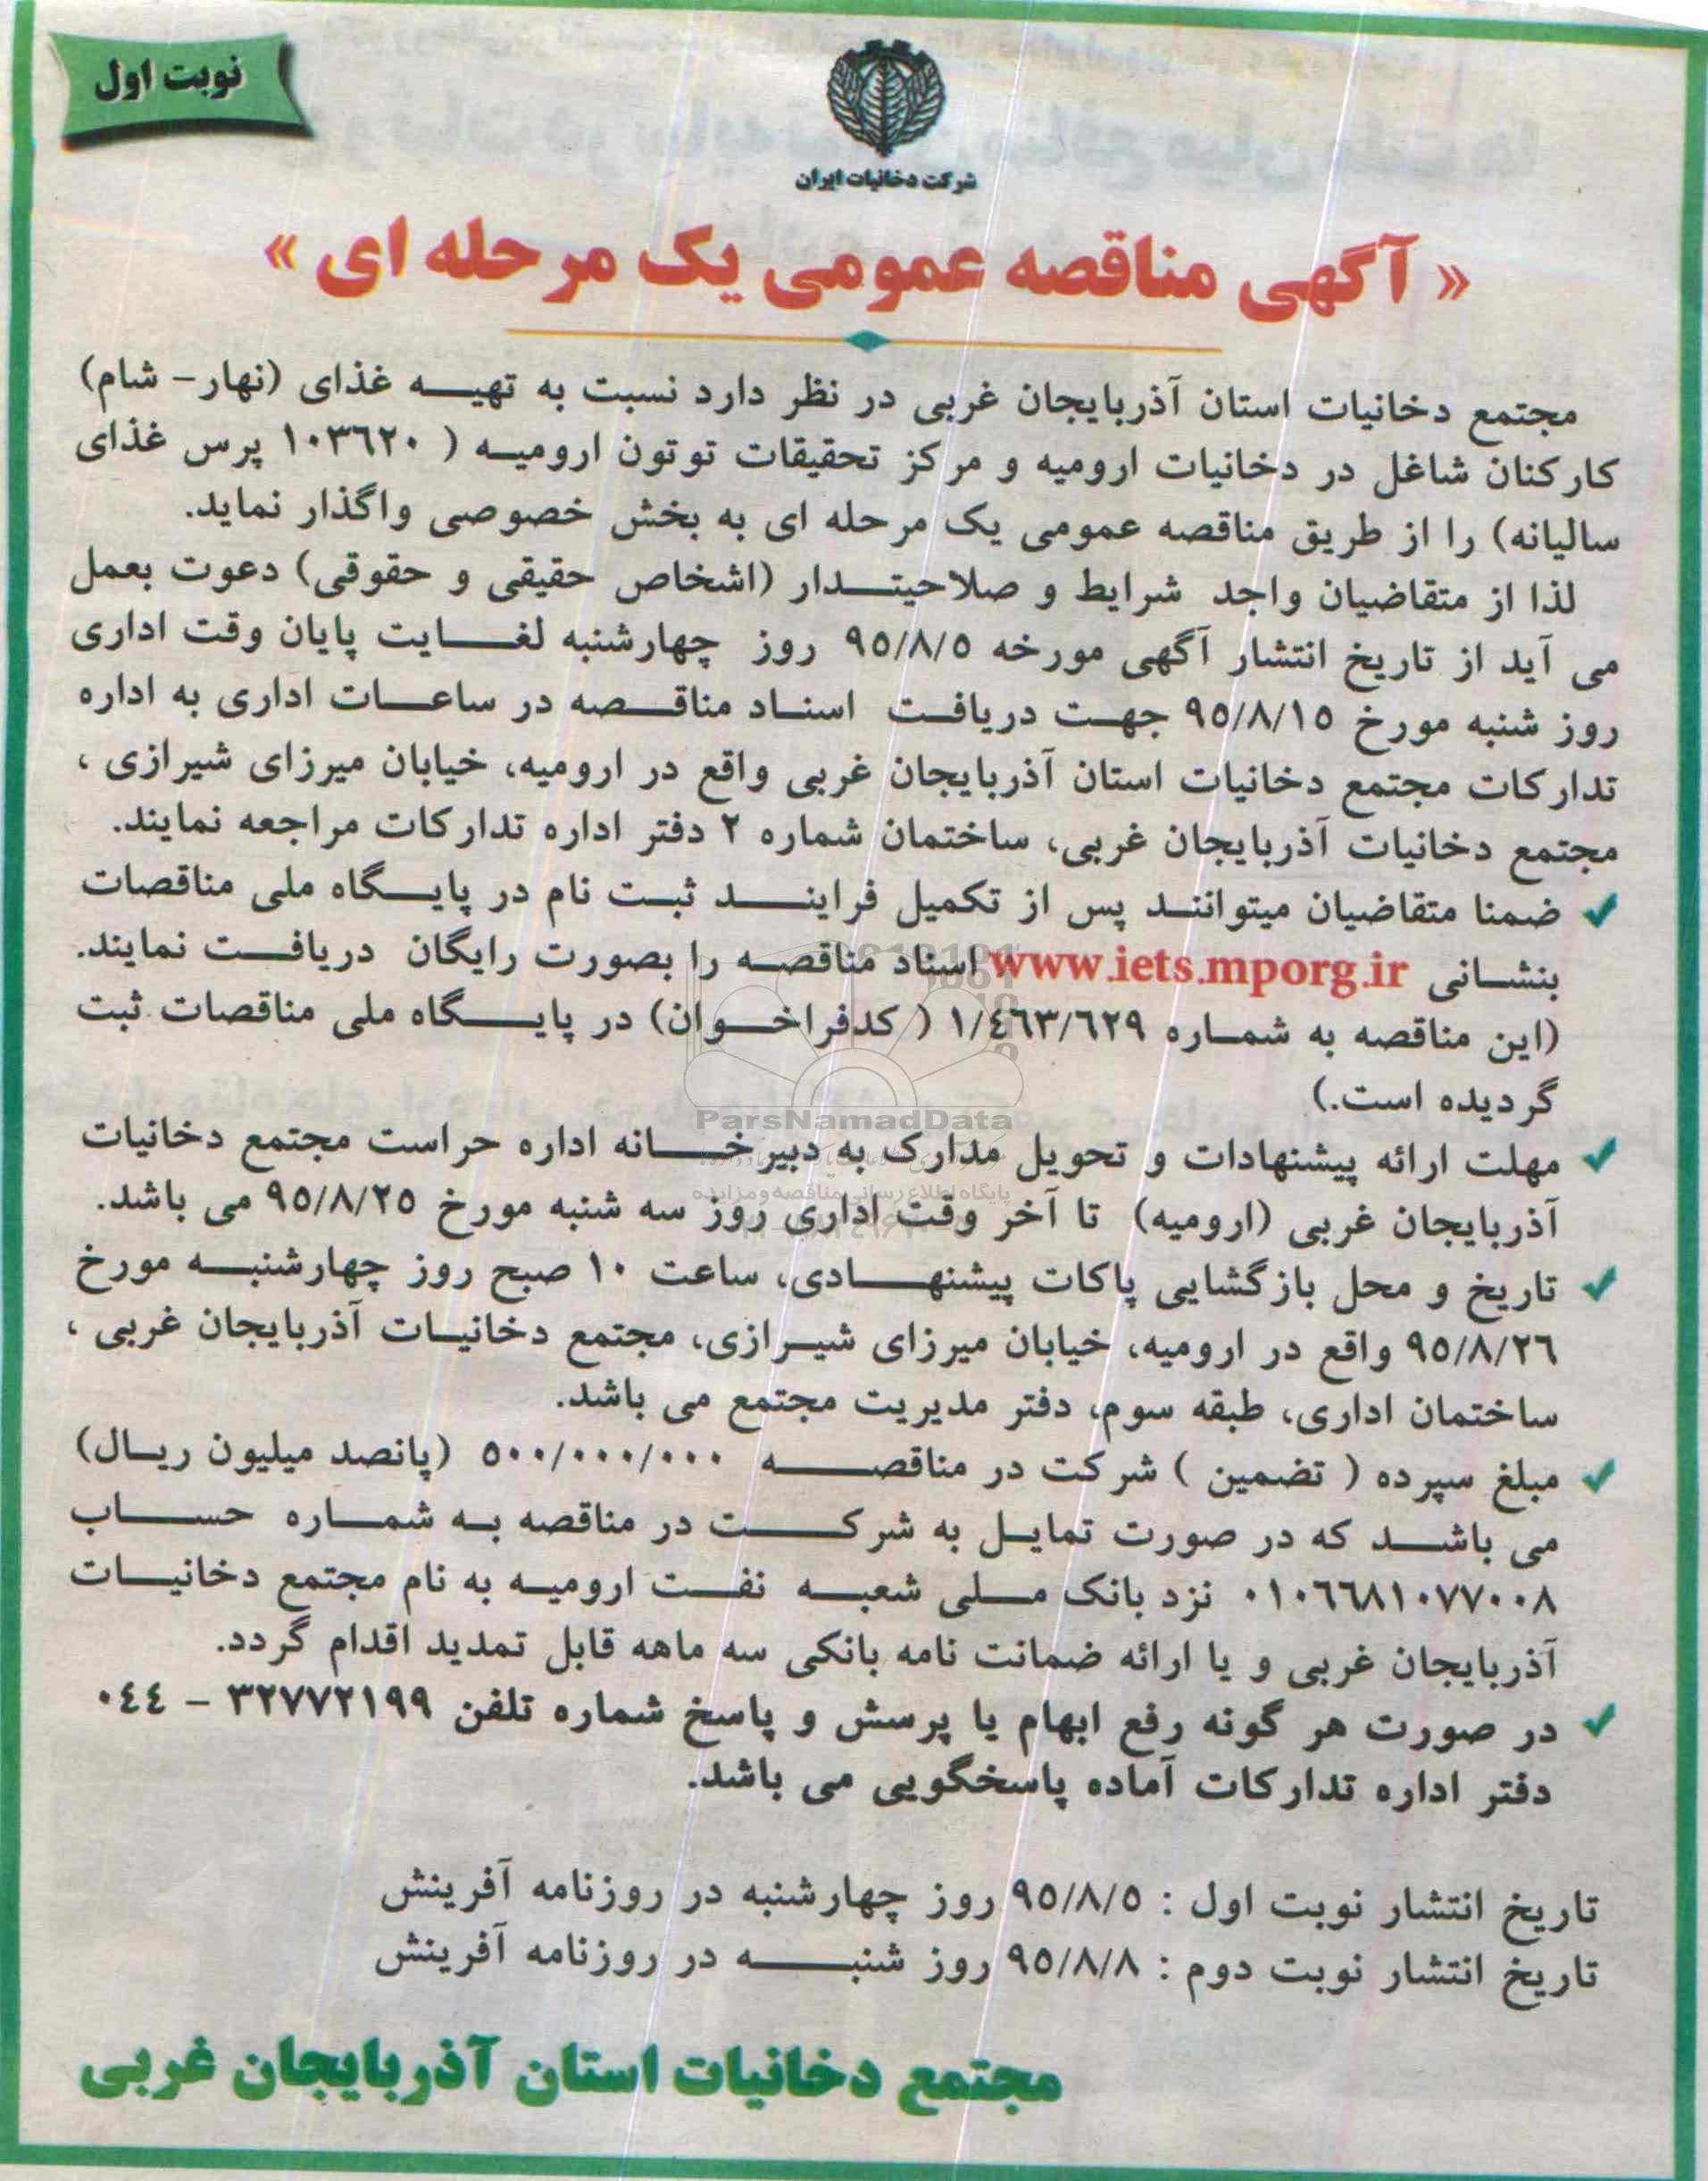 نوبت اول
شرکت دخانیات ایران
« آگهی مناقصه عمومی یک مرحله ای »
مجتمع دخانیات استان آذربایجان غربی در نظر دارد نسبت به تهیه غذای (نهار- شام)
کارکنان شاغل در دخانیات ارومیه و مرکز تحقیقات توتون ارومیه ( ۱۰۳٦۲۰ پرس غذای
سالیانه) را از طریق مناقصه عمومی یک مرحله ای به بخش خصوصی واگذار نماید.
لذا از متقاضیان واجد شرایط و صلاحیتدار (اشخاص حقیقی و حقوقی) دعوت بعمل
می آید از تاریخ انتشار آگهی مورخه ۹٥/۸/٥ روز چهارشنبه لغایت پایان وقت اداری
روز شنبه مورخ ۹٥/۸/۱٥ جهت دریافت اسناد مناقصه در ساعات اداری به اداره
تدارکات مجتمع دخانیات استان آذربایجان غربی واقع در ارومیه، خیابان میرزای شیرازی ،
مجتمع دخانیات آذربایجان غربی، ساختمان شماره ۲ دفتر اداره تدارکات مراجعه نمایند.
✔ ضمنا متقاضیان میتوانند پس از تکمیل فرایند ثبت نام در پایگاه ملی مناقصات
بنشانی www.iets.mporg.ir اسناد مناقصه را بصورت رایگان دریافت نمایند.
(این مناقصه به شماره ۱/٤٦۳/٦۲۹ ( کدفراخوان) در پایگاه ملی مناقصات ثبت
گردیده است.)
ParsNamadData
✔ مهلت ارائه پیشنهادات و تحویل مدارک به دبیرخانه اداره حراست مجتمع دخانیات
پایگاه اطلاع رسانی مناقصه و مزایده
آذربایجان غربی (ارومیه) تا آخر وقت اداری روز سه شنبه مورخ ۹٥/۸/۲٥ می باشد.
✔ تاریخ و محل بازگشایی پاکات پیشنهادی، ساعت ۱۰ صبح روز چهارشنبه مورخ
۹٥/۸/۲٦ واقع در ارومیه، خیابان میرزای شیرازی، مجتمع دخانیات آذربایجان غربی ،
ساختمان اداری، طبقه سوم، دفتر مدیریت مجتمع می باشد.
✔ مبلغ سپرده ( تضمین ) شرکت در مناقصه ٥۰۰/۰۰۰/۰۰۰ (پانصد میلیون ریال)
می باشد که در صورت تمایل به شرکت در مناقصه به شماره حساب
۰۱۰٦٦۸۱۰۷۷۰۰۸ نزد بانک ملی شعبه نفت ارومیه به نام مجتمع دخانیات
آذربایجان غربی و یا ارائه ضمانت نامه بانکی سه ماهه قابل تمدید اقدام گردد.
✔ در صورت هر گونه رفع ابهام یا پرسش و پاسخ شماره تلفن ۳۲۷۷۲۱۹۹ - ۰٤٤
دفتر اداره تدارکات آماده پاسخگویی می باشد.
تاریخ انتشار نوبت اول : ۹٥/۸/٥ روز چهارشنبه در روزنامه آفرینش
تاریخ انتشار نوبت دوم : ۹٥/۸/۸ روز شنبه در روزنامه آفرینش
مجتمع دخانیات استان آذربایجان غربی